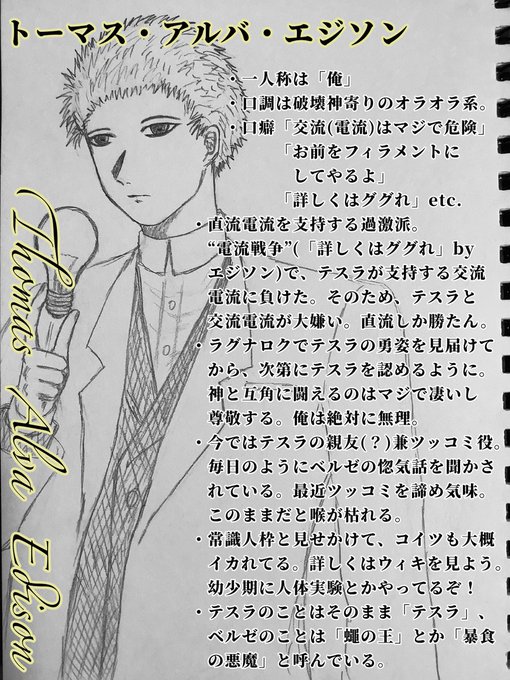 トーマス・アルバ・エジソン
・一人称は「俺」
・口調は破壊神寄りのオラオラ系。
・口癖「交流(電流)はマジで危険」
「お前をフィラメントに
してやるよ」
「詳しくはググれ」etc.
・直流電流を支持する過激派。
“電流戦争”(「詳しくはググれ」by
エジソン)で、テスラが支持する交流
電流に負けた。そのため、テスラと
交流電流が大嫌い。直流しか勝たん。
・ラグナロクでテスラの勇姿を見届けて
から、次第にテスラを認めるように。
神と互角に闘えるのはマジで凄いし
尊敬する。俺は絶対に無理。
・今ではテスラの親友(？)兼ツッコミ役。
毎日のようにベルゼの惚気話を聞かさ
れている。最近ツッコミを諦め気味。
このままだと喉が枯れる。
・常識人枠と見せかけて、コイツも大概
イカれてる。詳しくはウィキを見よう。
幼少期に人体実験とかやってるぞ！
・テスラのことはそのまま「テスラ」、
ベルゼのことは「蠅の王」とか「暴食
の悪魔」と呼んでいる。
Thomas Alva Edison